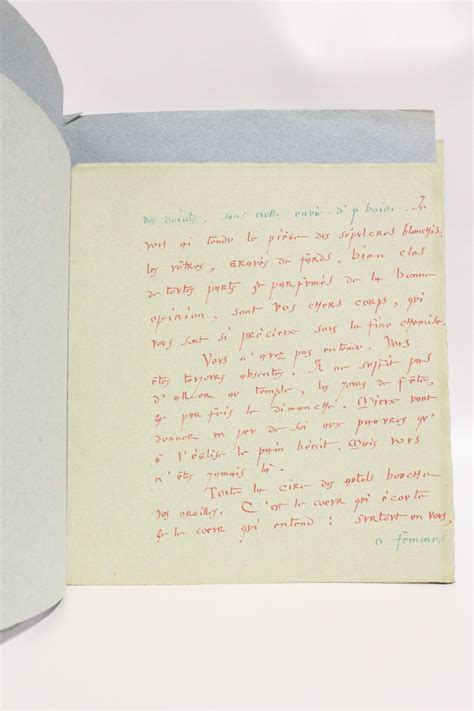 des doigts, sans nulle envie d'y boire. Je
vous ai tendu le piège des sépulcres blanchis.
les vôtres, gravés de fards, bien clos
de toutes parts & parfumés de la bonne
opinion, sont vos chers corps, qui
vous sont si précieux sous la fine chemise.
Vous n'avez pas entendu. Vous
êtes toujours absentes. Il ne suffit pas
d'aller au temple, les jours de fête,
& par fois le dimanche. Mieux vaut
donner un peu de soi aux pauvres qu'
à l'église le pain bénit. Mais vous
n'êtes jamais là.
Toute la cire des autels bouche
vos oreilles. C'est le coeur qui écoute
& le coeur qui entend : surtout en vous,
o femmes